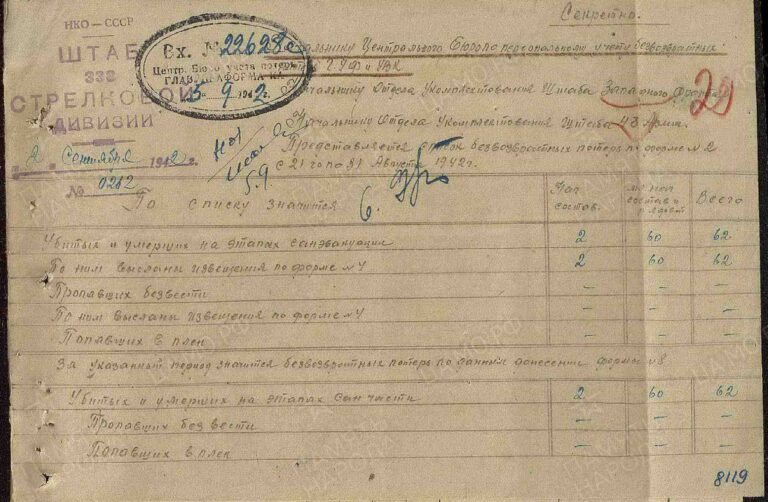 Секретно.
НКО — СССР
ШТАБ
332
СТРЕЛКОВОЙ
ДИВИЗИИ
2 Сентября 1942 г.
№ 0212
Вх. № 22628с
Центр. Бюро учета потерь
5 9 1942 г.
Начальнику Центрального Бюро персонального учета безвозвратных
Начальнику Отдела Укомплектования Штаба Западного фронта
29
Начальнику Отдела Укомплектования Штаба 43 Армии.
Представляется список безвозвратных потерь по форме № 2
с 21 го по 31 Августа 1942 г.
5.9
По списку значится
Нач состав. Мл. нач состав и рядов. Всего
Убитых и умерших на этапах санэвакуации 2 60 62
По ним высланы извещения по форме № 4 2 60 62
Пропавших безвести — — —
По ним высланы извещения по форме № 4 — — —
Попавших в плен — — —
За указанный период значится безвозвратных потерь по данным донесении формы № 8
Убитых и умерших на этапах сан части 2 60 62
Пропавших без вести — — —
Попавших в плен — — —
8119